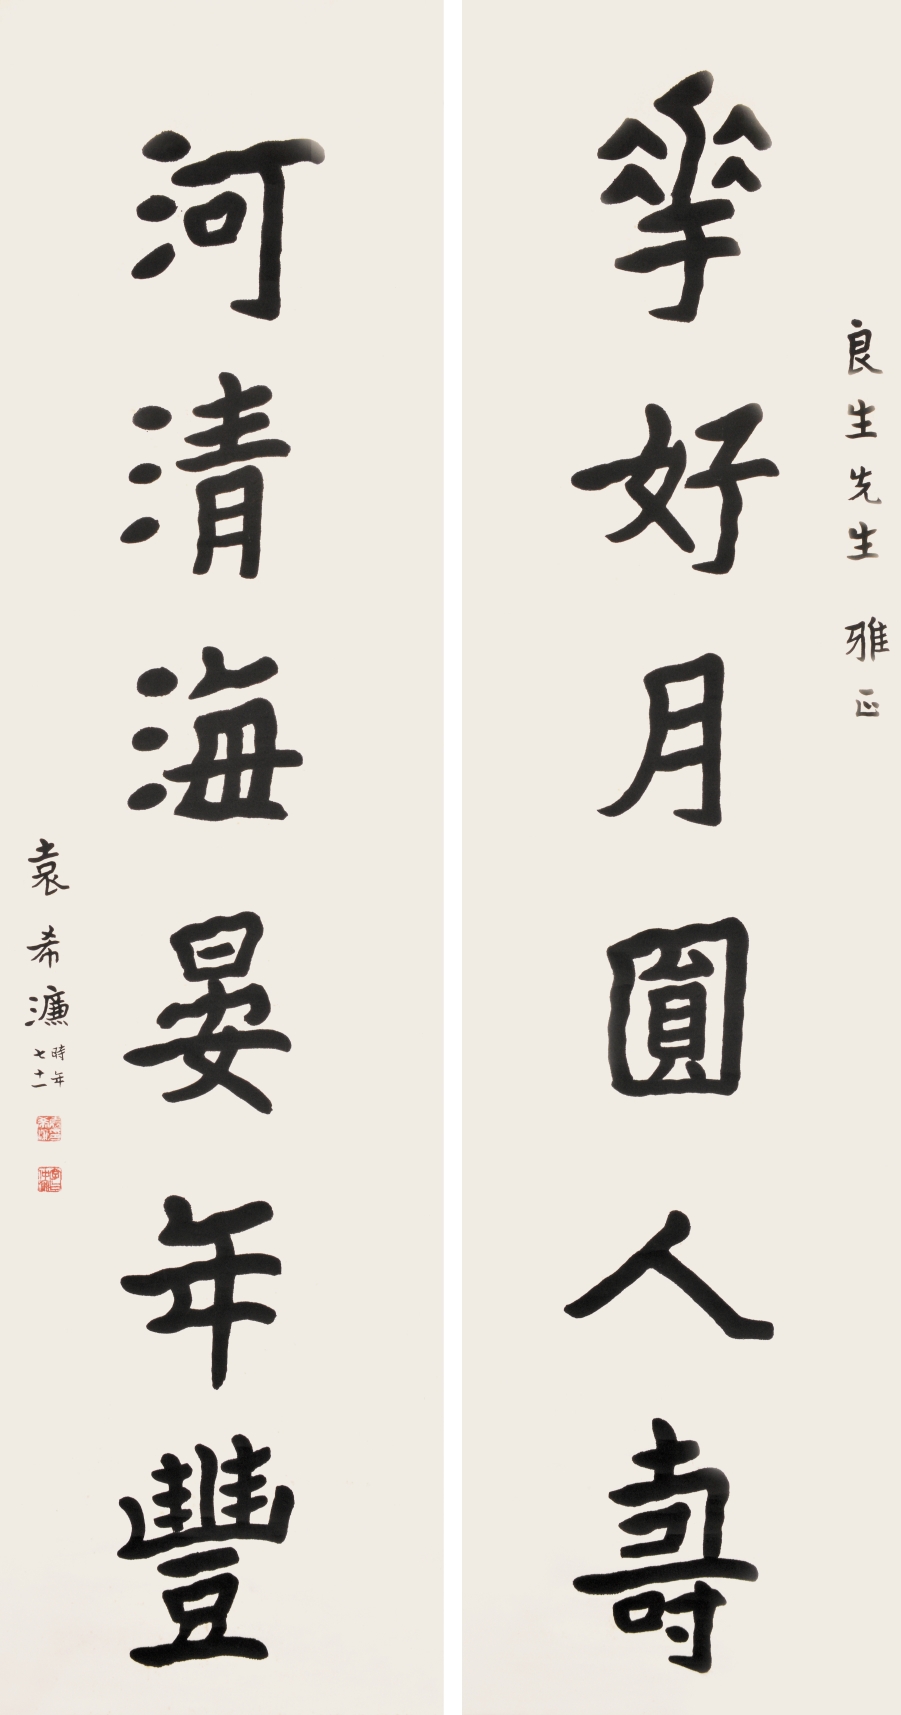 良生先生 雅正
華好月圓人壽
河清海晏年豐
袁希濂
時年
七十一